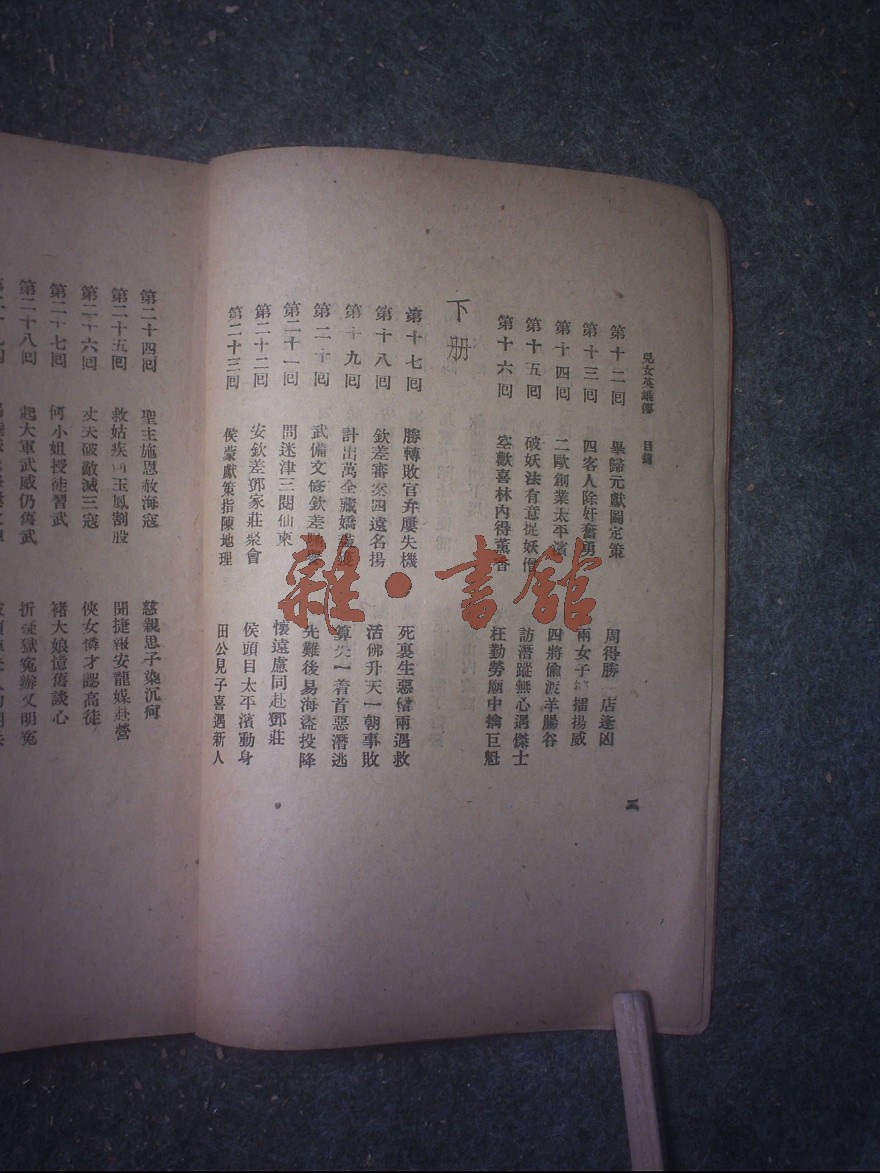 兒女英雄傳　目錄
第十二回　畢歸元獻圖定策　周得勝一店逢凶
第十三回　四客人除奸奮勇　兩女子擂揚威
第十四回　二歐創業太平濱　四將偷渡羊腸谷
第十五回　破妖法有意捉妖僧　訪潛蹤無心遇傑士
第十六回　空歡喜林內得薰香　枉勤勞廟中擒巨魁
下册
第十七回　勝轉敗官弁屢失機　死裏生惡僧兩遇救
第十八回　欽差審案四遠名揚　活佛升天一朝事敗
第十九回　計出萬全藏嬌　算失一着首惡潛逃
第二十回　武備文修欽差　先難後易海盜投降
第二十一回　問迷津三閱仙柬　懷遠慮同赴鄧莊
第二十二回　安欽差鄧家莊聚會　侯頭目太平濱動身
第二十三回　侯蒙獻策指陳地理　田公見子喜遇新人
三
第二十四回　聖主施恩赦海寇　慈親思子染沉疴
第二十五回　救姑疾玉鳳割股　聞捷報安龍媒赴營
第二十六回　丈夫破敵滅三寇　俠女憐才認高徒
第二十七回　何小姐授徒習武　褚大娘憶舊談心
第二十八回　起大軍武威仍舊武　折獄冤辦文明冤
雜·書館